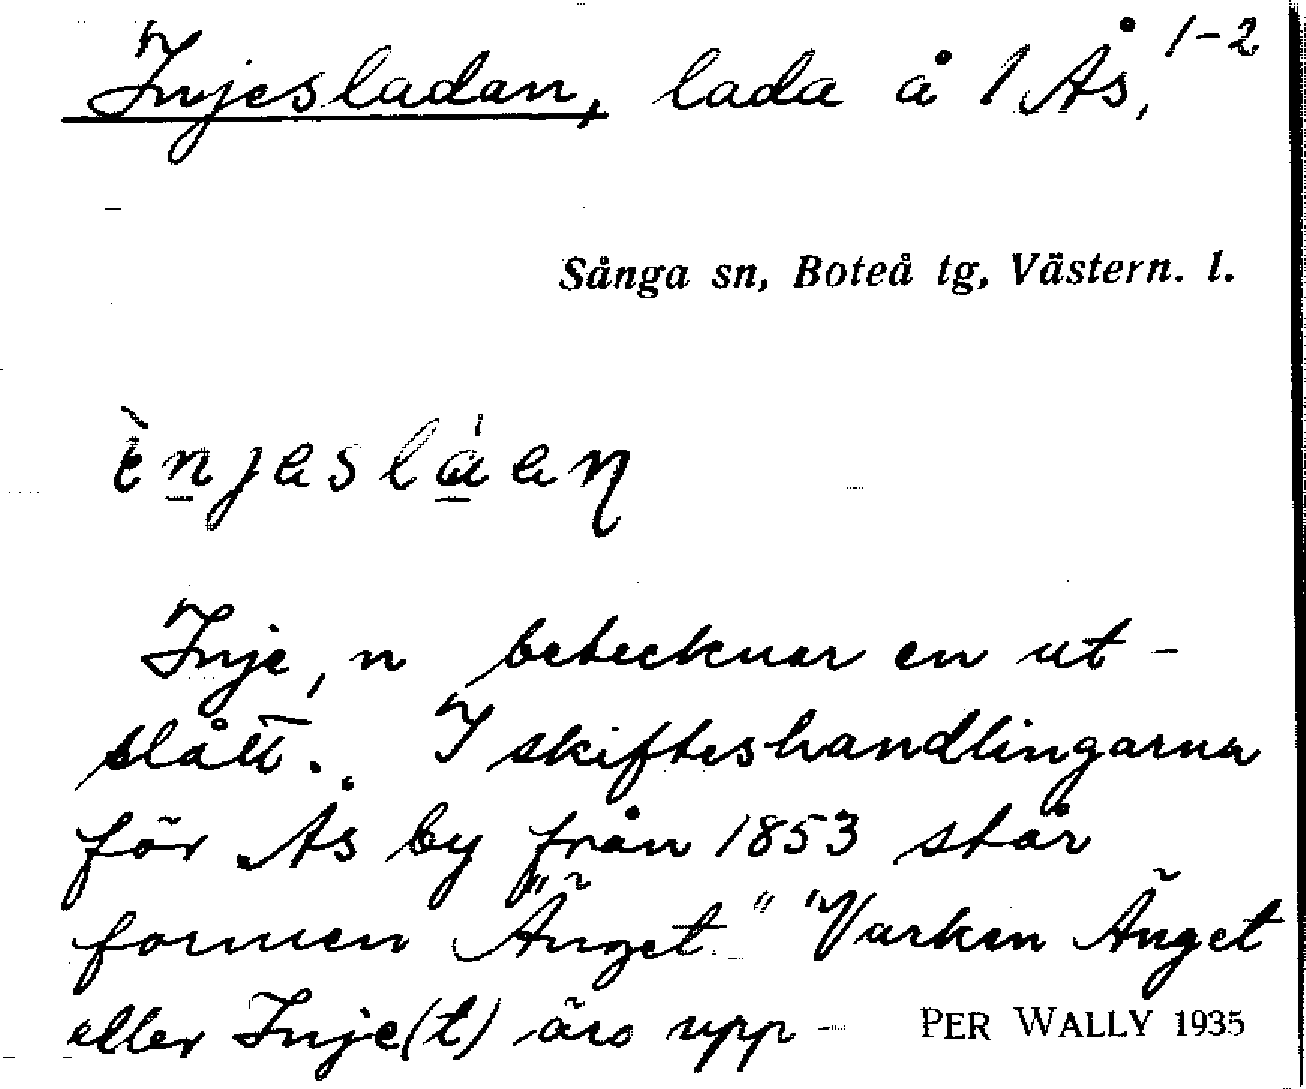 Injesladan, lada å 1 Ås, 1-2
Sånga sn, Boteå tg, Västern. l.
ènjesláen
Inje, n betecknar en ut-
slått. I skifteshandlingarna
för Ås by från 1853 står
formen "Änget." "Varken Änget
eller Inje(t) äro upp-
PER WALLY 1935